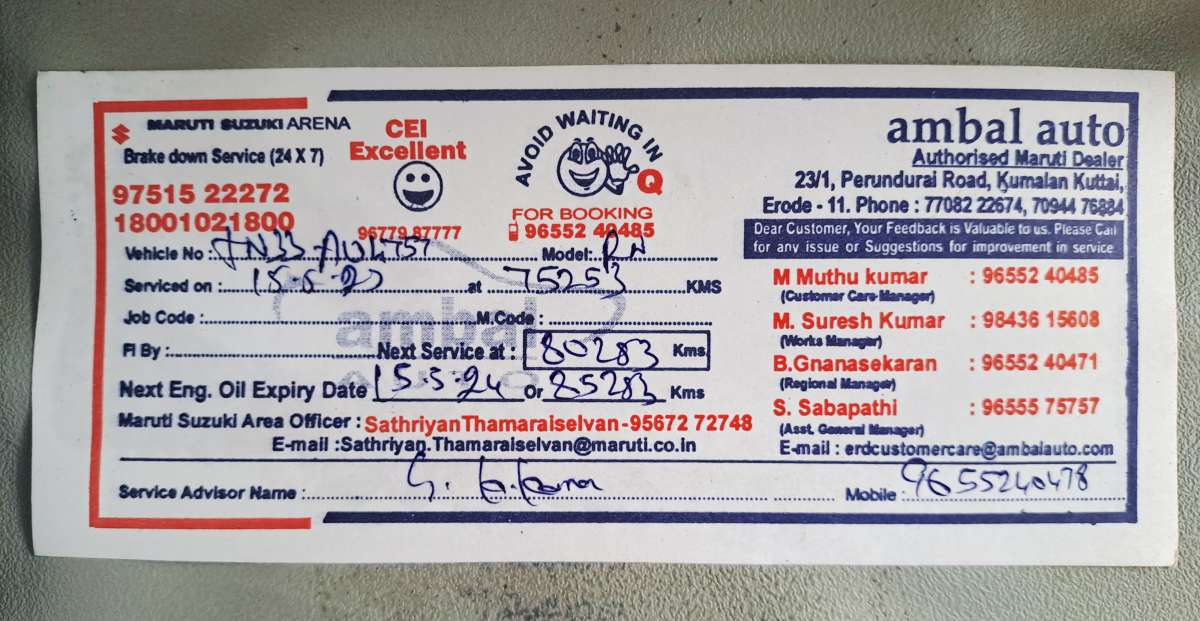 MARUTI SUZUKI ARENA
Brake down Service (24 X 7)
97515 22272
18001021800
CEI
Excellent
96779 87777
AVOID WAITING IN Q
FOR BOOKING
96552 40485
ambal auto
Authorised Maruti Dealer
23/1, Perundurai Road, Kumalan Kuttai,
Erode - 11. Phone : 77082 22674, 70944 76884
Dear Customer, Your Feedback is Valuable to us. Please Call
for any issue or Suggestions for improvement in service
Vehicle No : Model:
Serviced on : 15.5.23 at 75253 KMS
Job Code : M.Code :
FI By : Next Service at : 80283 Kms
Next Eng. Oil Expiry Date 15.5.24 Or 85283 Kms
Maruti Suzuki Area Officer : Sathriyan Thamaraiselvan - 95672 72748
E-mail :Sathriyan.Thamaraiselvan@maruti.co.in
M Muthu kumar : 96552 40485
(Customer Care Manager)
M. Suresh Kumar : 98436 15608
(Works Manager)
B.Gnanasekaran : 96552 40471
(Regional Manager)
S. Sabapathi : 96555 75757
(Asst. General Manager)
E-mail : erdcustomercare@ambalauto.com
Service Advisor Name : Mobile : 9655240478
ambal